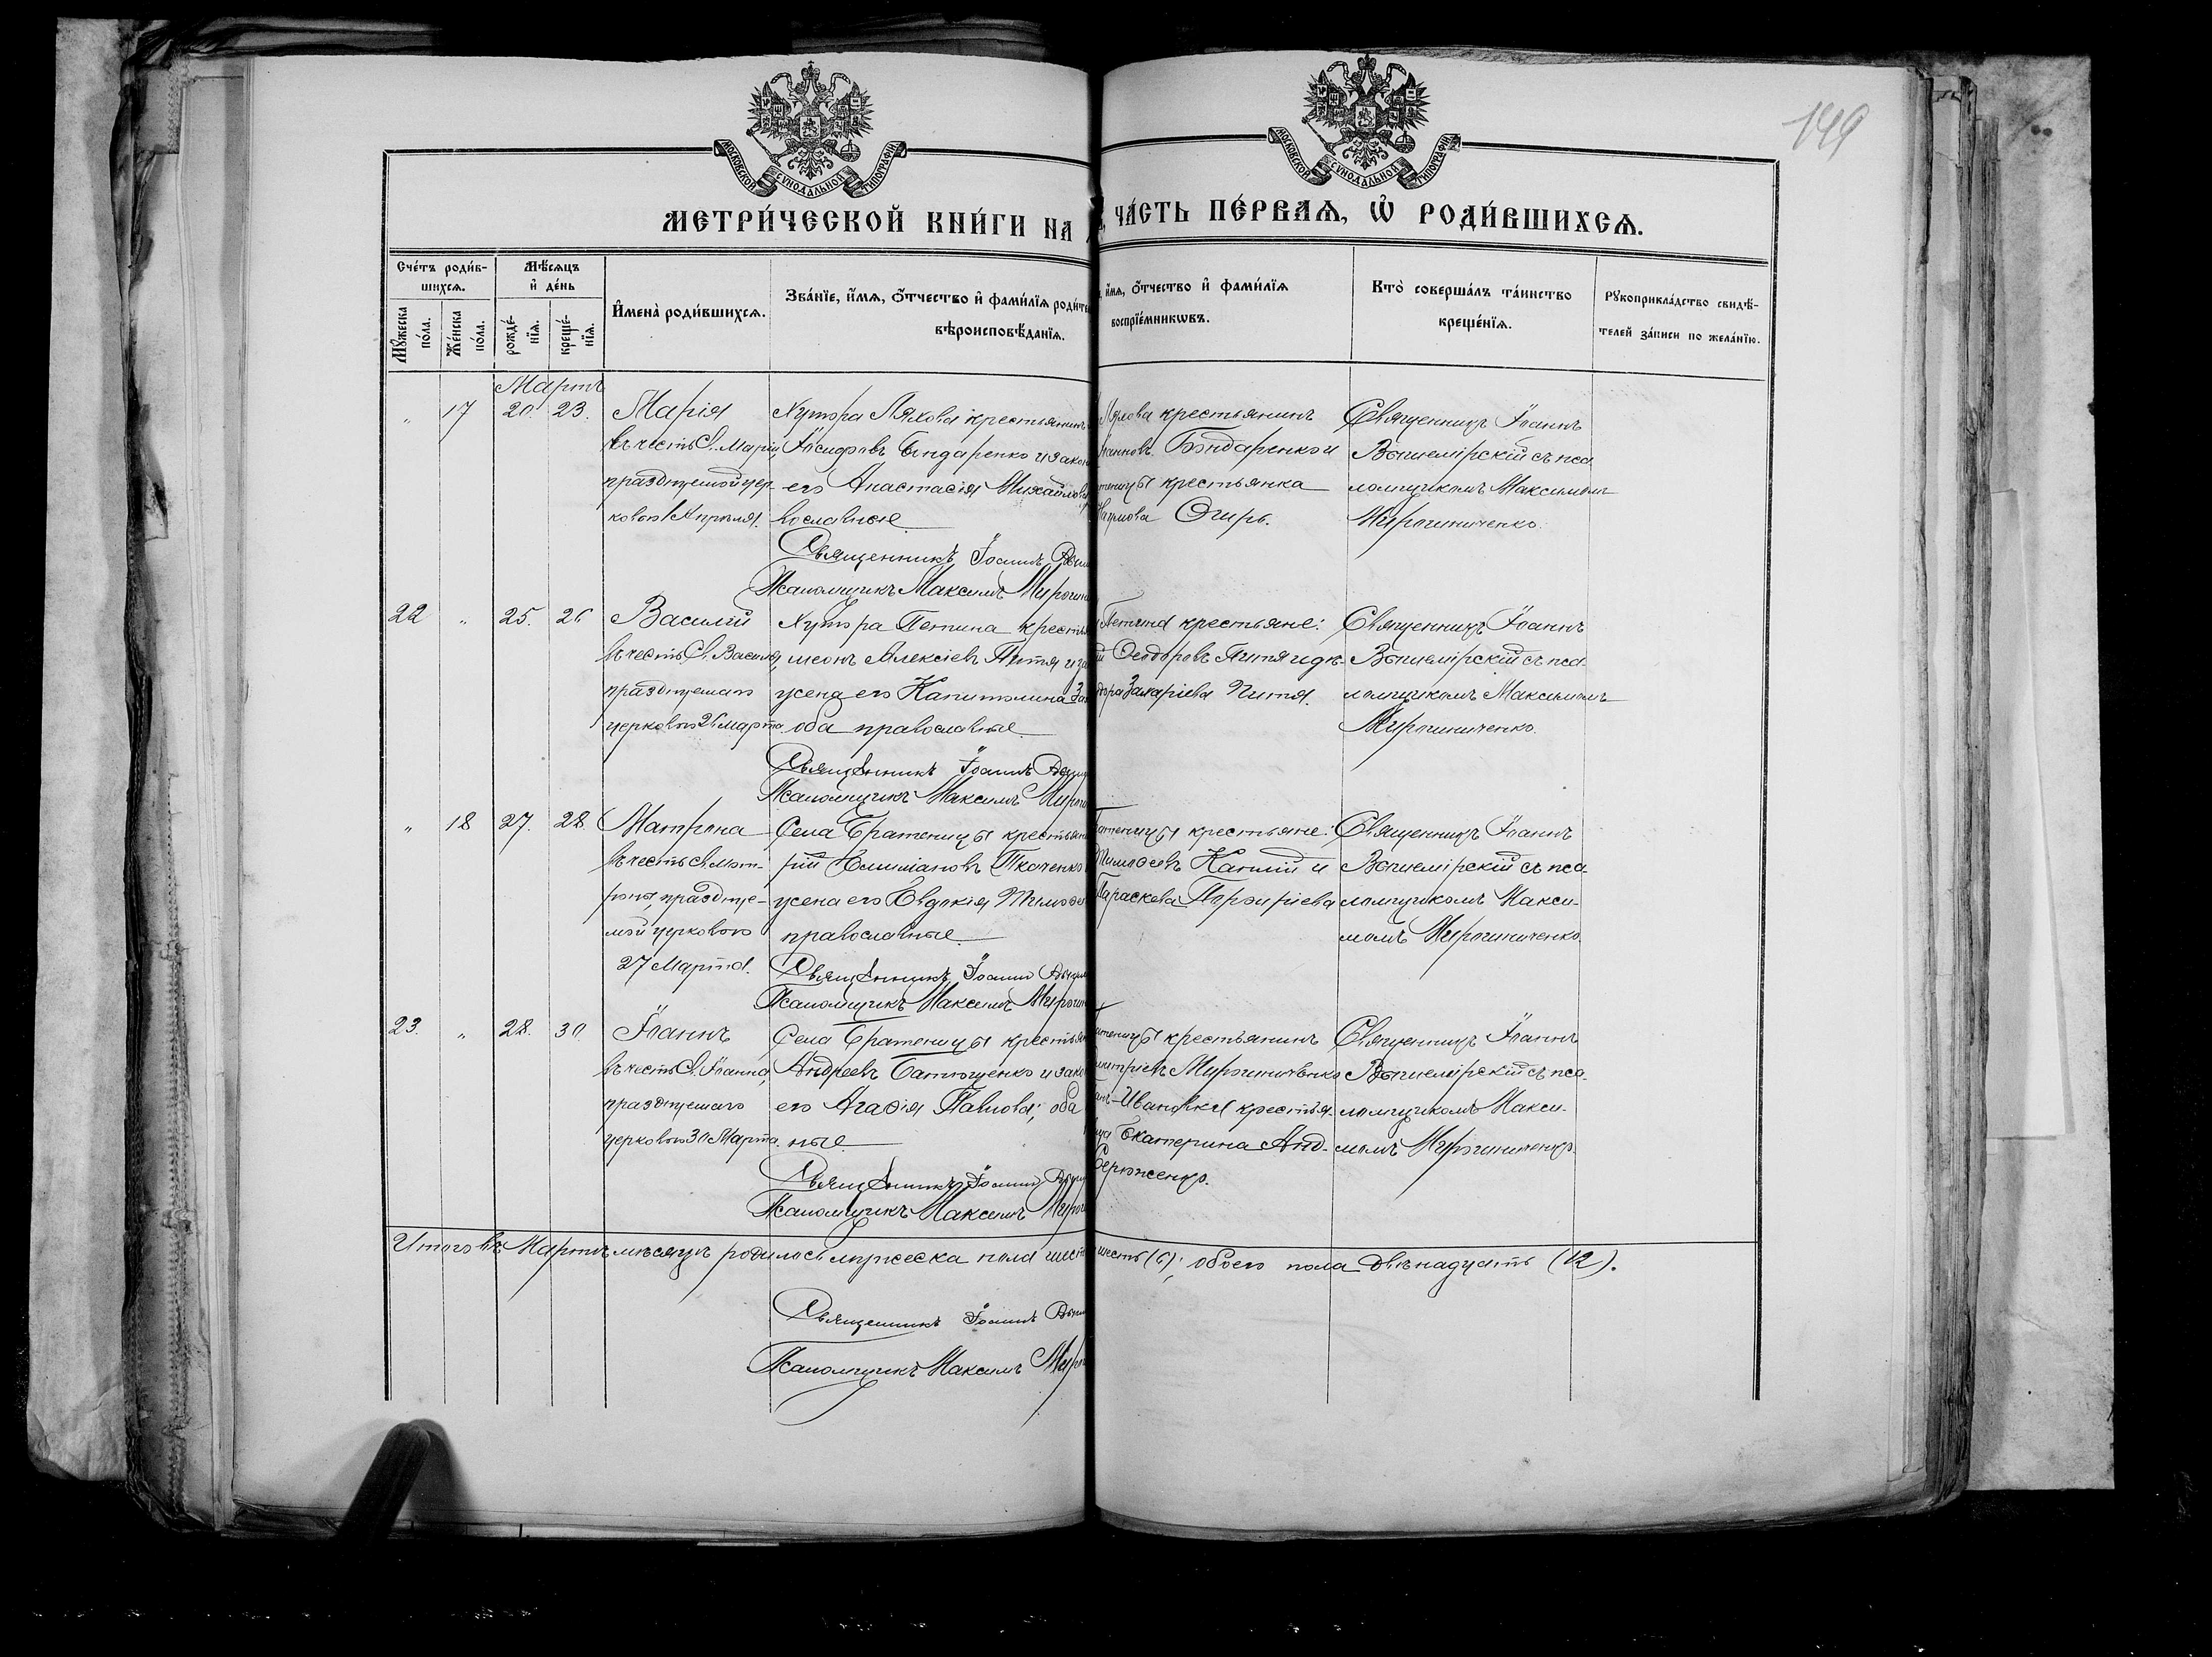 149
МОСКОВСКОЙ СУНОДАЛЬНОЙ ТИПОГРАФІИ
МОСКОВСКОЙ СУНОДАЛЬНОЙ ТИПОГРАФІИ
МЕТРИ́ЧЕСКОЙ КНИ́ГИ НА
ЧА́СТЬ ПЕ́РВАѦ, Ѡ҆ РОДИ́ВШИХСѦ.
Сче́тъ роди́в-
шихсѧ.
Мѣ́сѧцъ
и҆ де́нь
Мꙋ́жеска
по́ла.
Же́нска
по́ла.
рожде́-
нїѧ.
креще́-
нїѧ.
И҆мена̀ роди́вшихсѧ.
Зва́нїе, и҆́мѧ, ѻ҆́тчество и҆ фами́лїѧ роди́те
вѣроисповѣ́данїѧ.
и҆́мѧ, ѻ҆́тчество и҆ фами́лїѧ
воспрїе́мникѡвъ.
Кто̀ соверша́лъ та́инство
креще́нїѧ.
Рꙋкоприкла́дство свидѣ́-
телей за́писи по жела́нїю.
Мартъ
" 17 20 23.
Марія
въ честь Св. Маріи,
празднуемой цер-
ковью 1 Апрѣля.
Хутора Ляхова крестьянинъ
Іосифовъ Бондаренко и закон
его Анастасія Михайлова
вославные
Священникъ Іоаннъ
Псаломщикъ Максимъ Мирогин
Ляхова крестьянинъ
Іоанновъ Бондаренко и
крестьянка
Наумова Огирь.
Священникъ Іоаннъ
Вышемірскій съ пса
ломщикомъ Максимомъ
Мирогниченко.
22 " 25. 26
Василій
въ честь Св. Василія,
празднуемаго
церковью 26 Марта
Хутора Петина кресть
меонъ Алексіевъ Питя и за
жена его Капитолина За
оба православные
Священникъ Іоаннъ
Псаломщикъ Максимъ Мирог
Петина крестьяне:
Ѳеодоровъ Питя и дѣ-
Захаріева Питя.
Священникъ Іоаннъ
Вышемірскій съ пса
ломщикомъ Максимомъ
Мирогниченко.
" 18 27. 28.
Матрона
въ честь Св. Мат-
роны, празднуе-
мой церковью
27 Марта.
Села Братеницы крестьян
рій Емиліановъ Ткаченко
жена его Евдокія Тимоѳе
православные
Священникъ Іоаннъ
Псаломщикъ Максимъ Мирогн
крестьяне:
Тимоѳеевъ и
Параскева Порфиріева
Священникъ Іоаннъ
Вышемірскій съ пса-
ломщикомъ Макси-
момъ Мирогниченко.
23. " 28. 30
Іоаннъ
въ честь Св. Іоанна,
празднуемаго
церковью 30 Марта.
Села Братеницы крестьян
Андреевъ Батющенко и зако
его Агаѳія Павлова; оба
ные
Священникъ Іоаннъ
Псаломщикъ Максимъ Мирог
крестьянинъ
Мирогниченко
Ивановки крестья-
Екатерина Анд-
Серженко.
Священникъ Іоаннъ
Вышемірскій съ пса-
ломщикомъ Макси-
момъ Мирогниченко.
Итого въ Мартѣ мѣсяцѣ родилось мужеска пола шест
шесть (6); обоего пола двѣнадцать (12).
Священникъ Іоаннъ
Псаломщикъ Максимъ Мирог